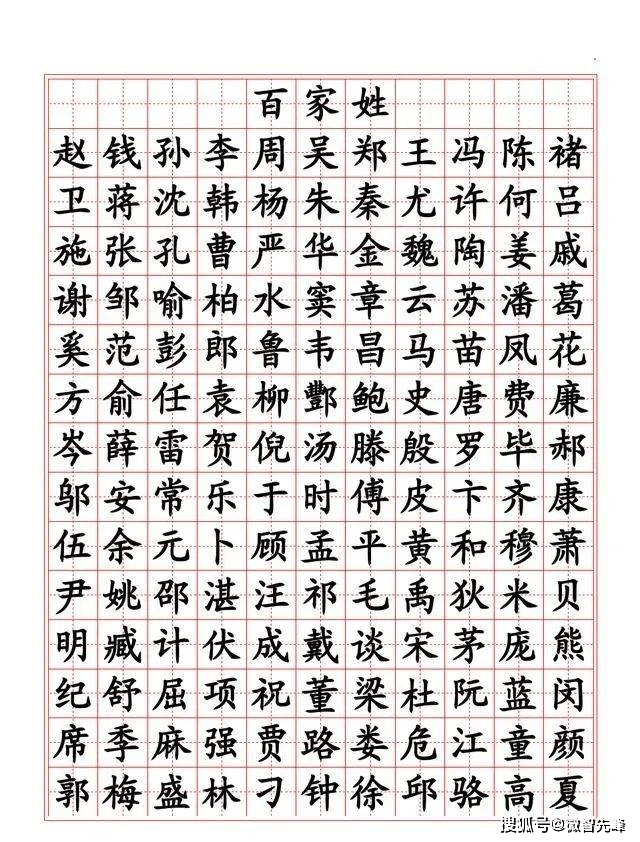 百家姓
赵钱孙李周吴郑王冯陈褚
卫蒋沈韩杨朱秦尤许何吕
施张孔曹严华金魏陶姜戚
谢邹喻柏水窦章云苏潘葛
奚范彭郎鲁韦昌马苗凤花
方俞任袁柳酆鲍史唐费廉
岑薛雷贺倪汤滕殷罗毕郝
邬安常乐于时傅皮卞齐康
伍余元卜顾孟平黄和穆萧
尹姚邵湛汪祁毛禹狄米贝
明臧计伏成戴谈宋茅庞熊
纪舒屈项祝董梁杜阮蓝闵
席季麻强贾路娄危江童颜
郭梅盛林刁钟徐邱骆高夏
搜狐号@微智先峰